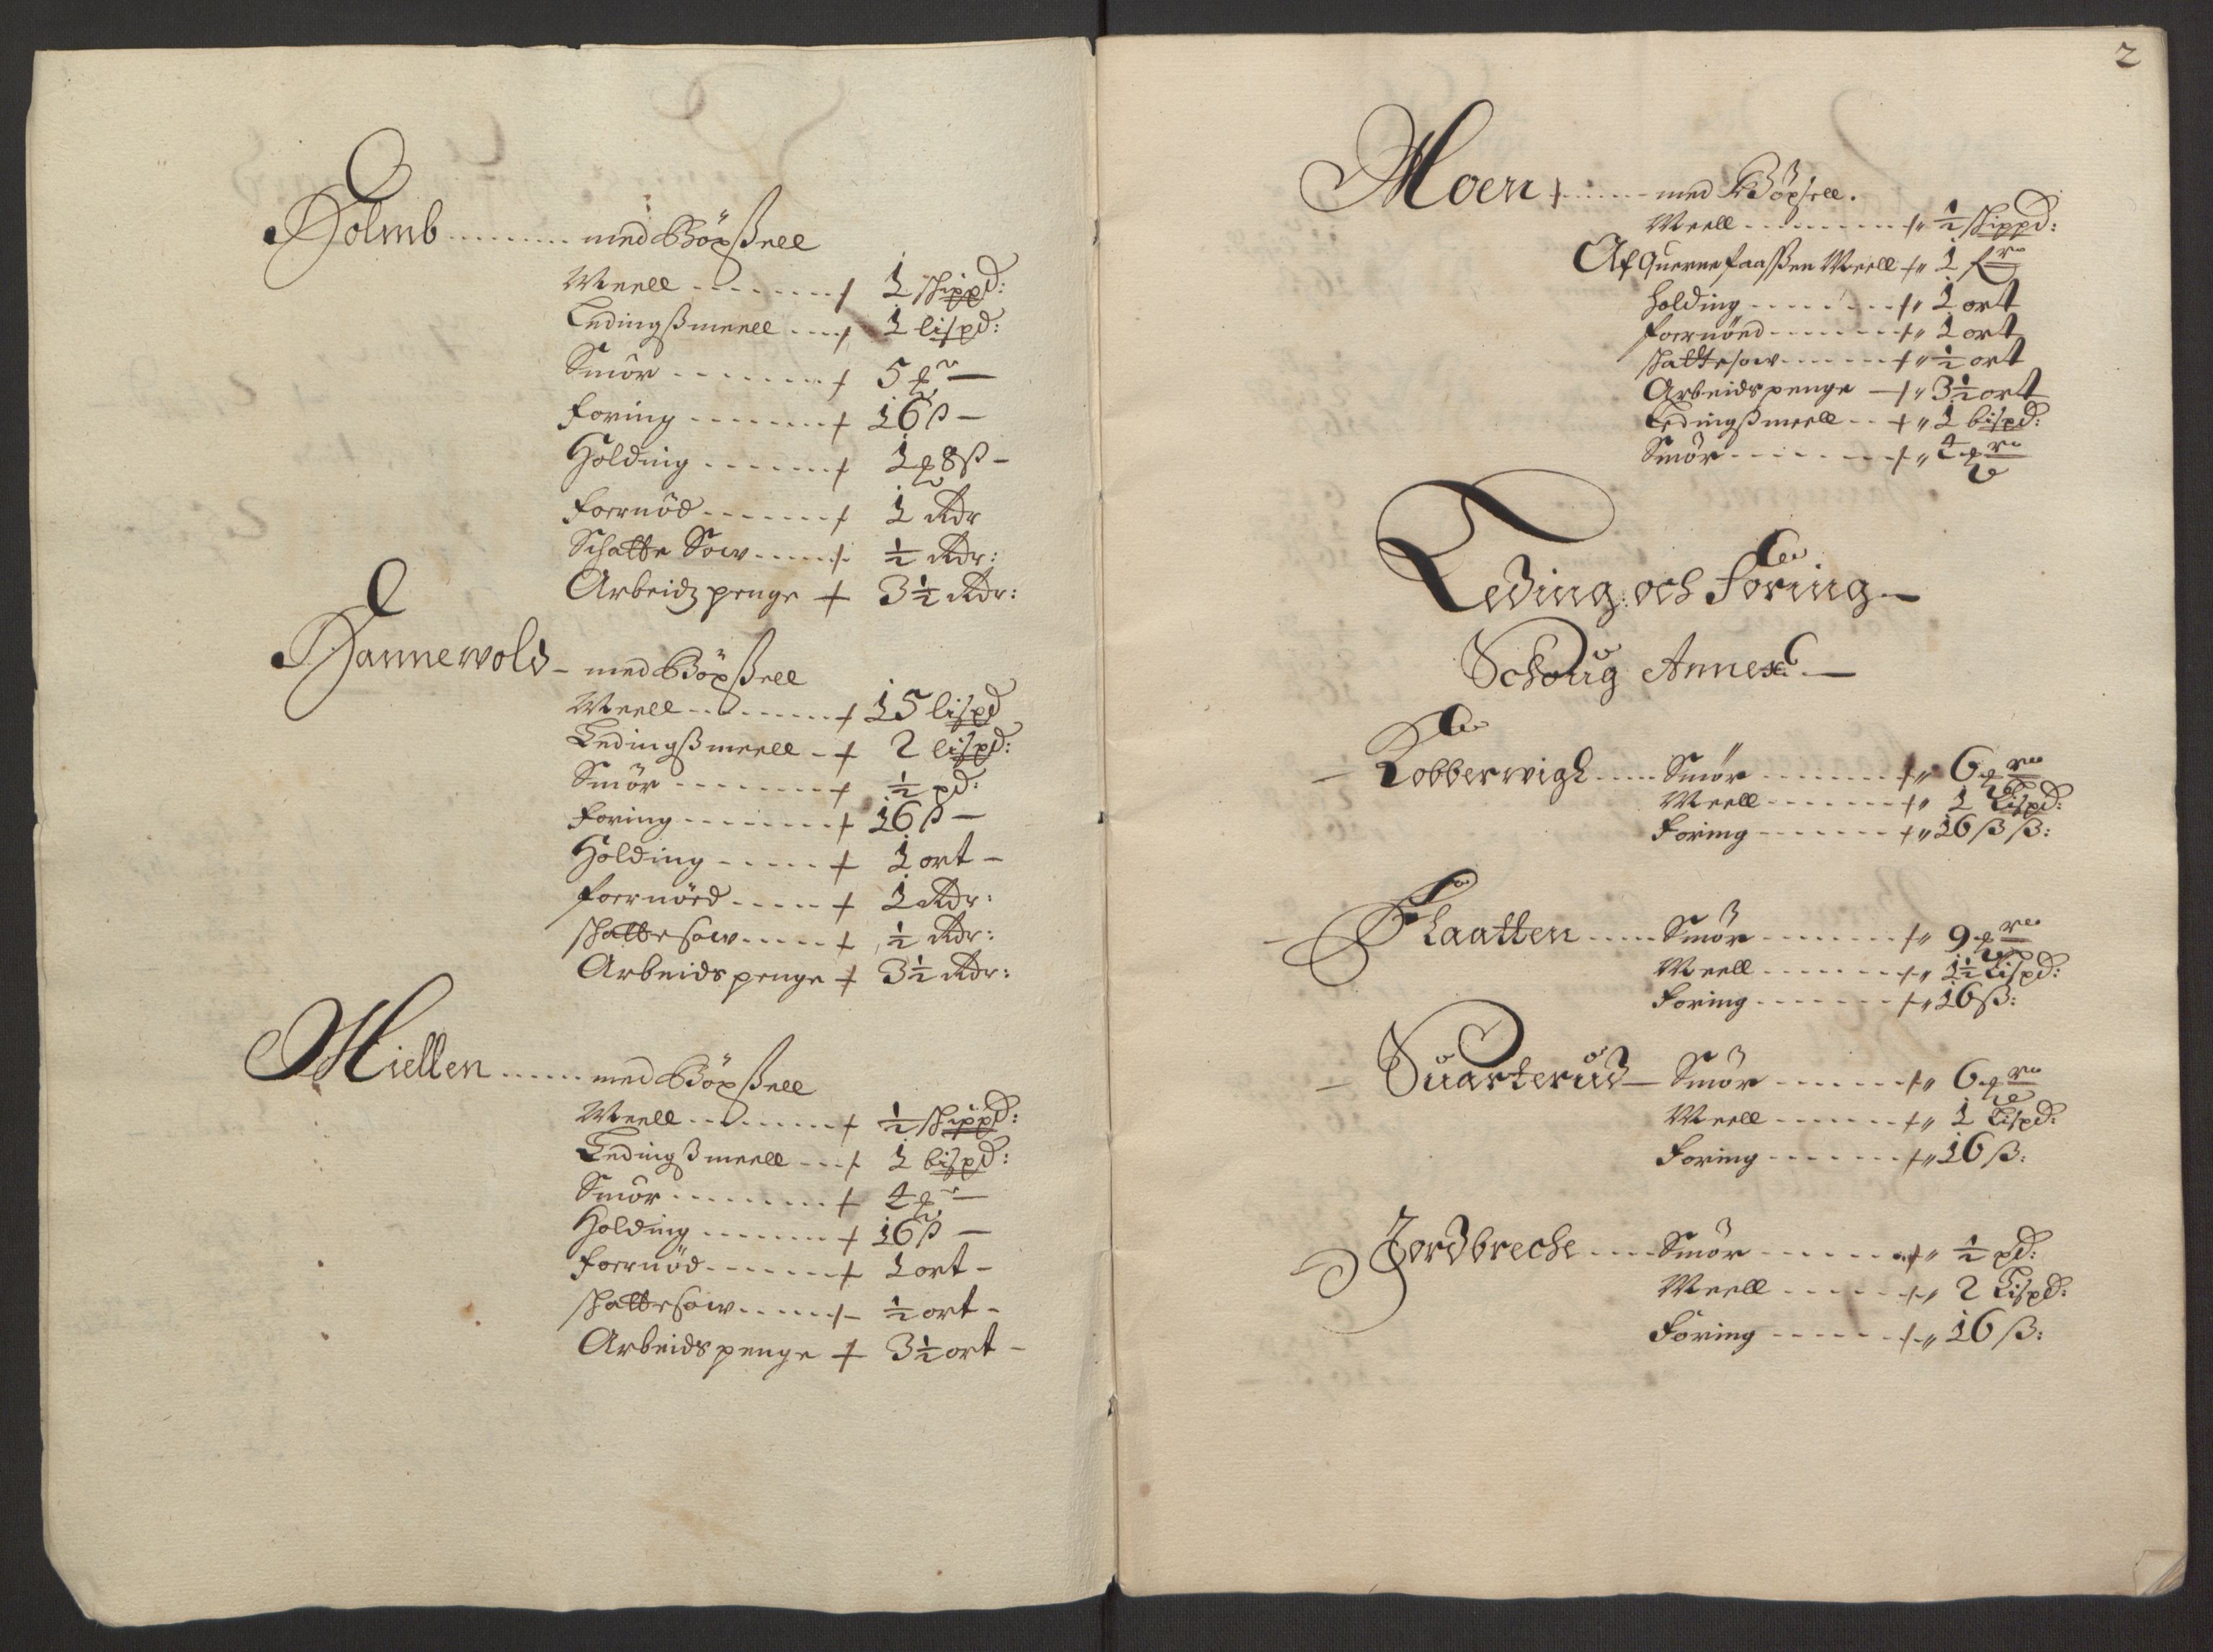 Holmb ......... med Böxsell
Meell ........ 1 skippd:
Ledingsmeell .... 1 lispd:
Smör ........ 5
Foring ....... 16 ß –
Holding ....... 1 8 ß –
Foernöd ....... 1 Rdr
Schatte Sow ..... ½ Rdr:
Arbeidz penge 3½ Rdr:
Hannewold – med Böxsell
Meell ........ 15 lispd
Ledingsmeell – 2 lispd:
Smör ........ ½ pd:
Foring ........ 16 ß –
Holding ..... 1 ort –
foernöed ..... 1 Rdr:
skattesow ..... ½ Rdr:
Arbeids penge 3½ Rdr:
Miellen ...... med Böxsell
Meell ........ ½ skippd:
Ledingsmeell ... 1 bispd:
Smör ........ 4
Holding ....... 16 ß –
foernöd ....... 1 ort –
skattesow ...... ½ ort –
Arbeids penge 3½ ort –
2
Moen ....... med Böxsell.
Meell ......... ½ skippd:
Af Quernefaassen Meell 1
Holding ....... 1 ort
foernöed ....... 1 ort
skattesow ...... ½ ort
Arbeidspenge — 3½ ort
Ledingsmeell .. 1 bispd:
Smör ........ 4
Leding: och Foring –
Schoug Annex: –
– Kobberwigh ..... Smör ....... 6
Meell ....... 1 Lispd:
Foring ....... 16 ß ß:
– Flaatten ..... Smör ....... 9
Meell ....... 1½ Lispd:
Foring ....... 16 ß:
– Suarterud – Smör ...... 6
Meell ...... 1 Lispd:
Foring ...... 16 ß:
Jordbreche .... Smör ....... ½ pd:
Meell ...... 2 Lispd:
Foring ...... 16 ß: